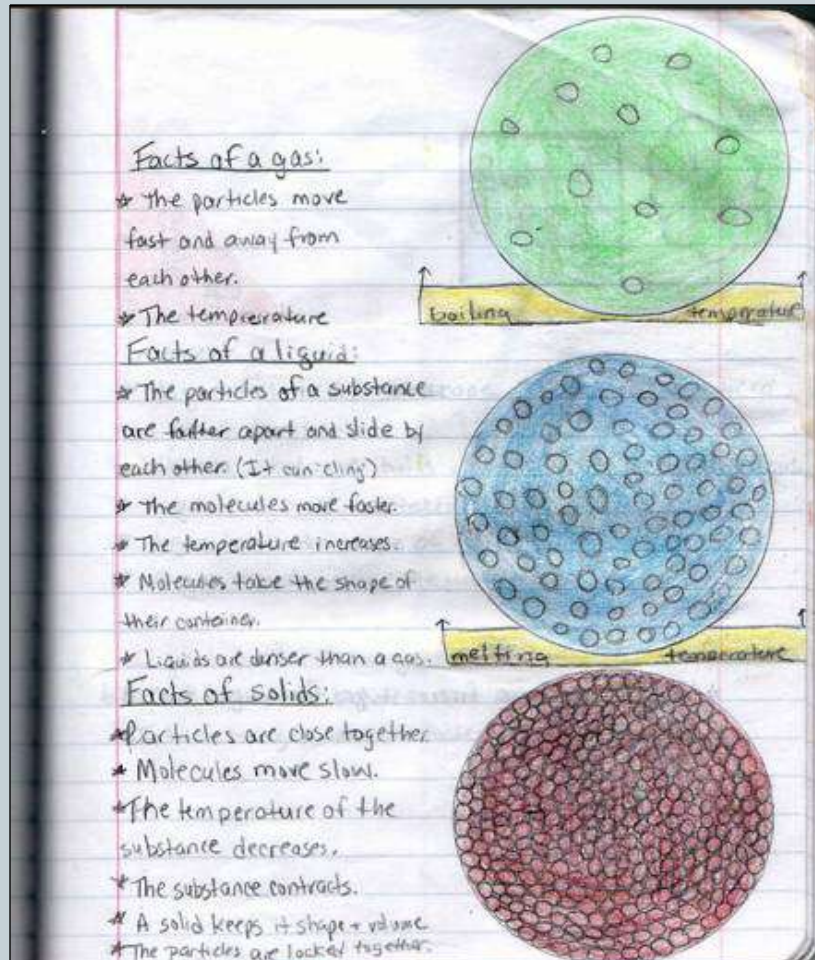 Facts of a gas:
* The particles move
fast and away from
each other.
* The tempresrature
boiling temprature
Facts of a liquid:
* The particles of a substance
are farther apart and slide by
each other. (It can cling)
* The molecules move faster.
* The temperature increases.
* Molecules take the shape of
their container.
* Liquids are denser than a gas.
melting temperature
Facts of solids:
* Particles are close together.
* Molecules move slow.
* The temperature of the
substance decreases.
* The substance contracts.
* A solid keeps it shape + volume
* The particles are locked together.